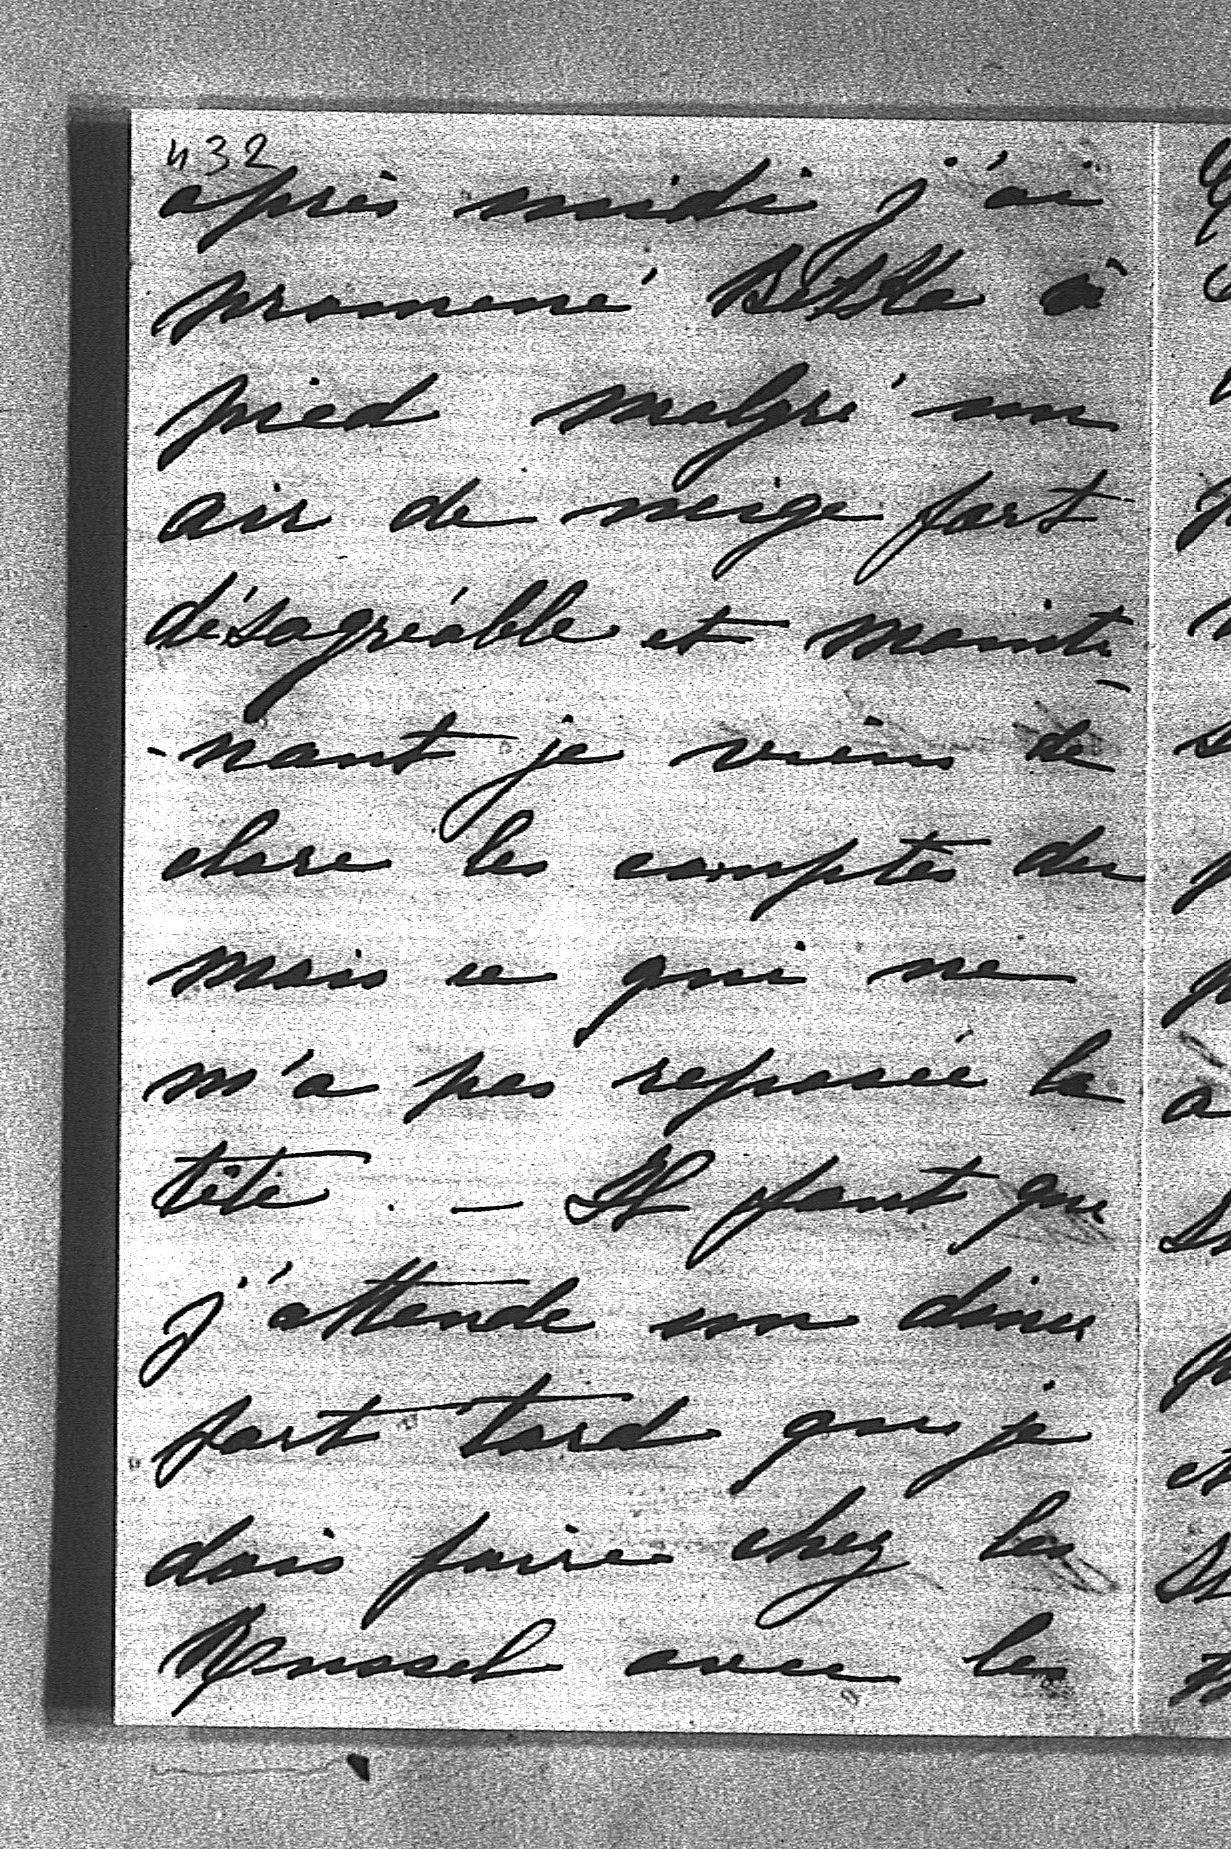 432
après midi j'ai
promené à
pied malgré un
air de neige fort
désagréable et mainte
-nant je viens de
clore les comptes du
mois ce qui ne
m'a pas reposée la
tête . — Il faut que
j'attende un diner
fort tard que je
dois faire chez les
Russel avec les